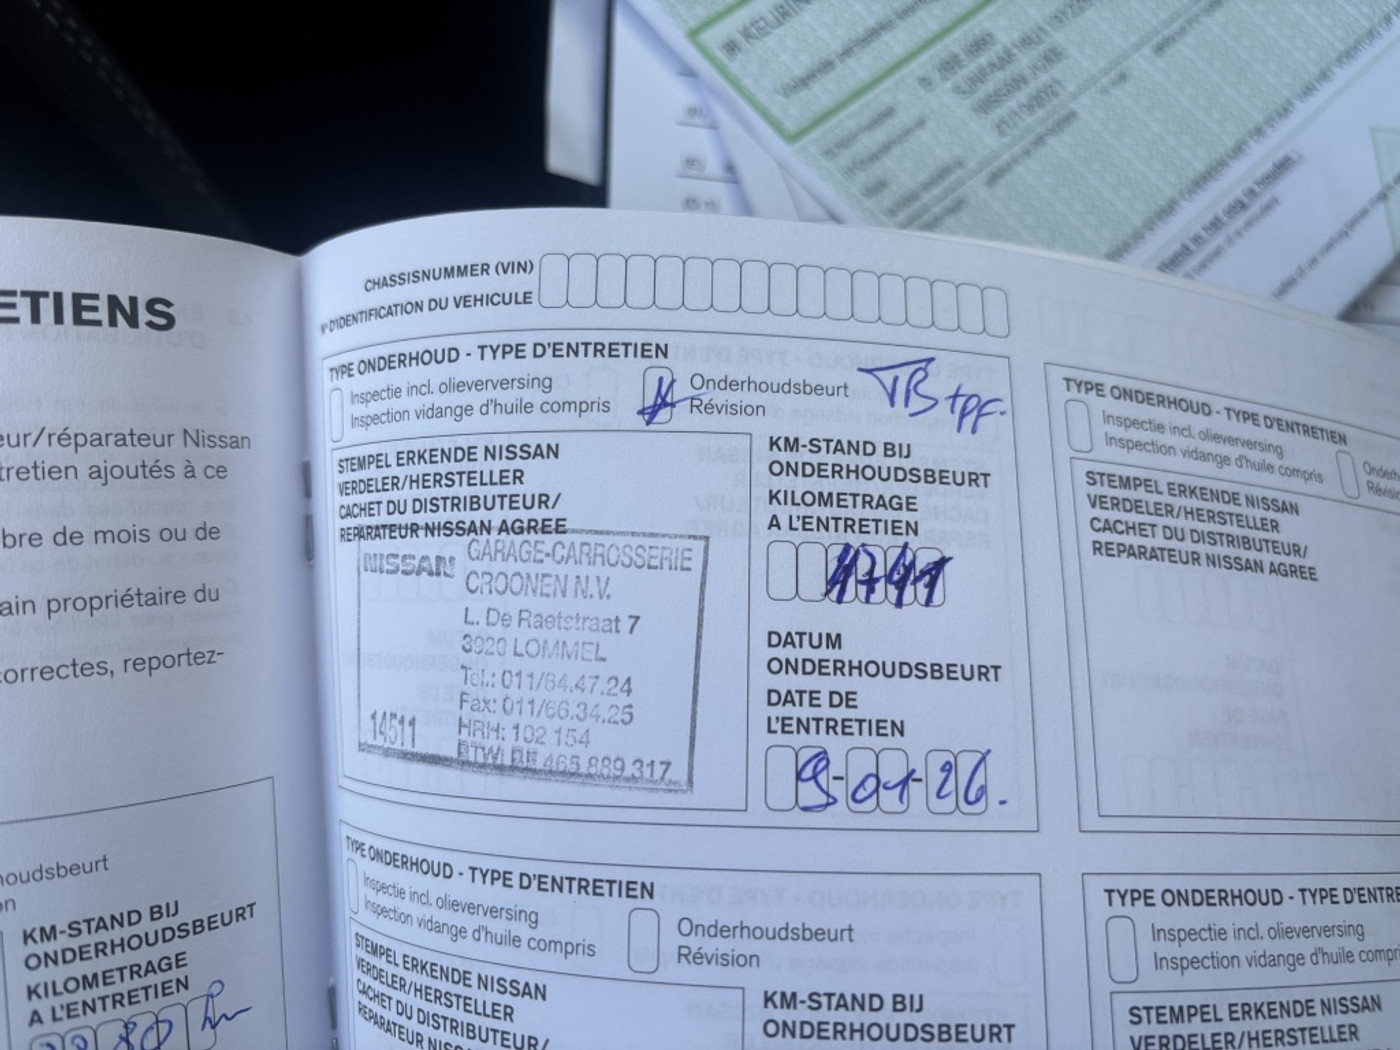 ETIENS
eur/réparateur Nissan
tretien ajoutés à ce
bre de mois ou de
ain propriétaire du
correctes, reportez-
houdsbeurt
on
KM-STAND BIJ
ONDERHOUDSBEURT
KILOMETRAGE
A L'ENTRETIEN
CHASSISNUMMER (VIN)
N° D'IDENTIFICATION DU VEHICULE
TYPE ONDERHOUD - TYPE D'ENTRETIEN
Inspectie incl. olieverversing
Inspection vidange d'huile compris
Onderhoudsbeurt
Révision
TB tpf.
STEMPEL ERKENDE NISSAN
VERDELER/HERSTELLER
CACHET DU DISTRIBUTEUR/
REPARATEUR NISSAN AGREE
NISSAN GARAGE-CARROSSERIE
CROONEN N.V.
L. De Raetstraat 7
3920 LOMMEL
Tel.: 011/64.47.24
Fax: 011/66.34.25
HRH: 102 154
14511
BTW: BE 465.889.317
KM-STAND BIJ
ONDERHOUDSBEURT
KILOMETRAGE
A L'ENTRETIEN
DATUM
ONDERHOUDSBEURT
DATE DE
L'ENTRETIEN
9-01-26.
TYPE ONDERHOUD - TYPE D'ENTRETIEN
Inspectie incl. olieverversing
Inspection vidange d'huile compris
STEMPEL ERKENDE NISSAN
VERDELER/HERSTELLER
CACHET DU DISTRIBUTEUR/
REPARATEUR NISSAN AGREE
TYPE ONDERHOUD - TYPE D'ENTRETIEN
Inspectie incl. olieverversing
Inspection vidange d'huile compris
Onderhoudsbeurt
Révision
STEMPEL ERKENDE NISSAN
VERDELER/HERSTELLER
CACHET DU DISTRIBUTEUR/
KM-STAND BIJ
ONDERHOUDSBEURT
TYPE ONDERHOUD - TYPE D'ENTRE
Inspectie incl. olieverversing
Inspection vidange d'huile compr
STEMPEL ERKENDE NISSAN
VERDELER/HERSTELLER
NISSAN JUKE
27/10/2021